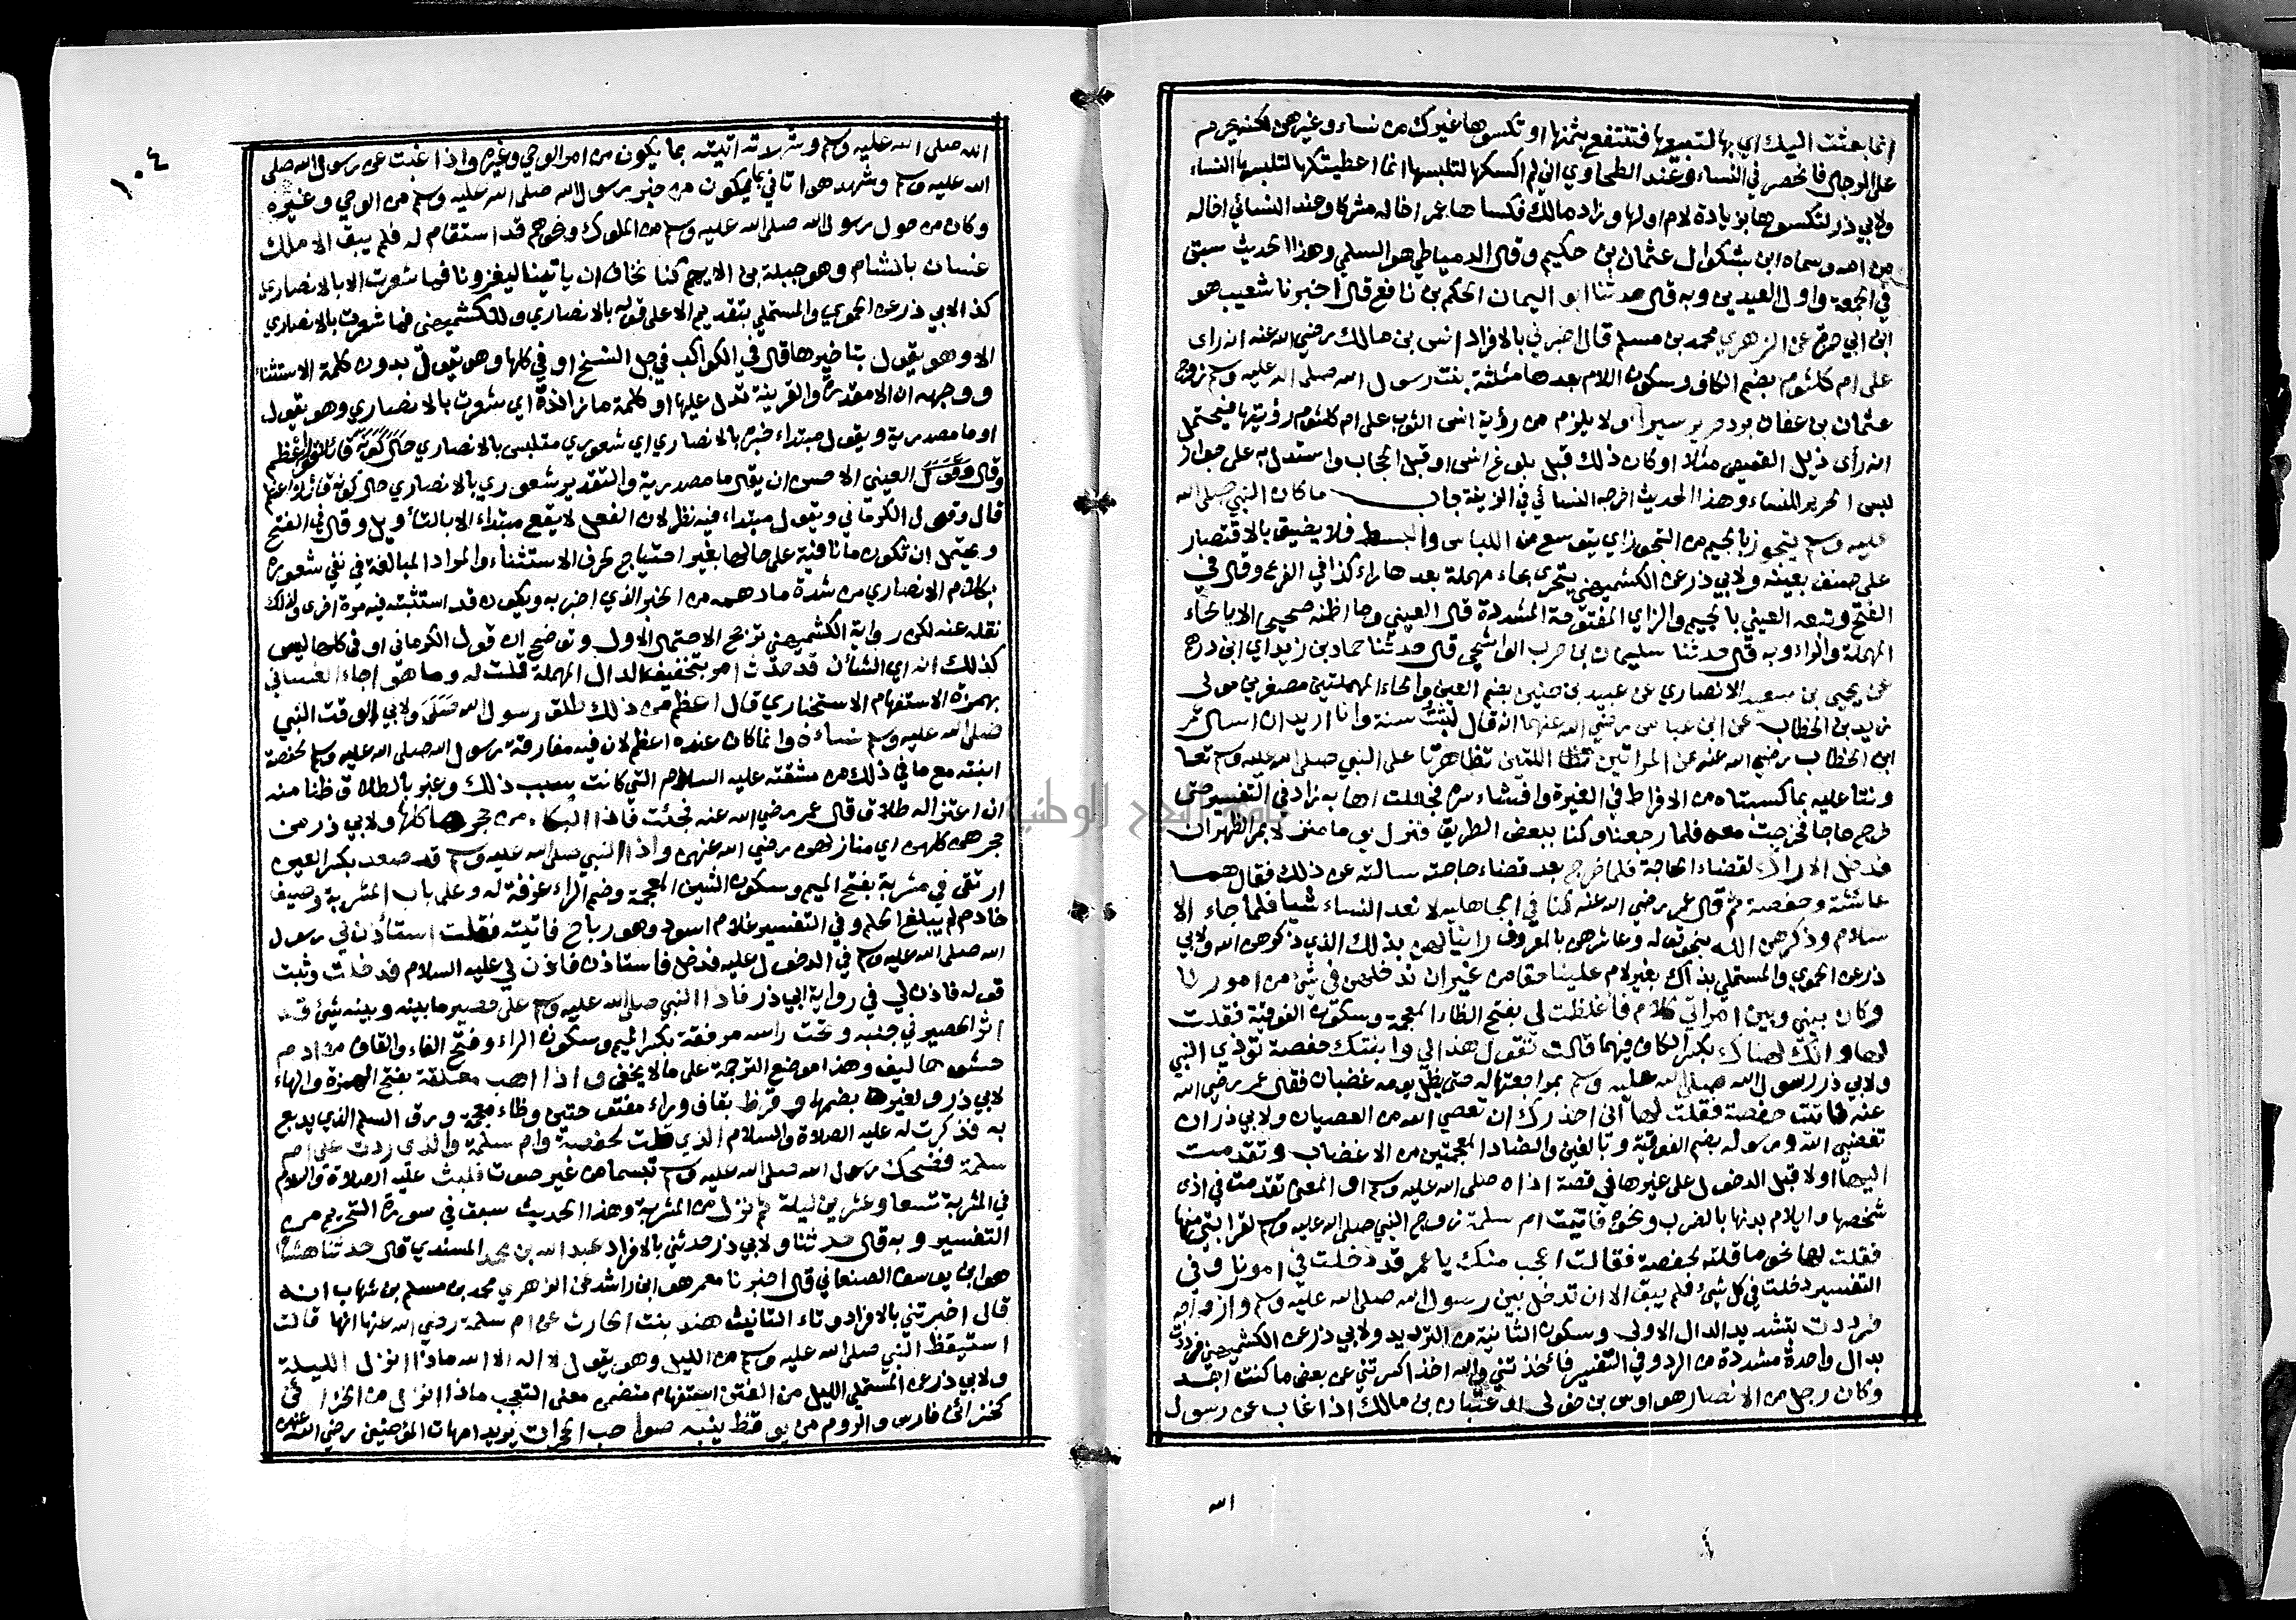 انما بعثت اليك اي بها لتبيعها فتنتفع بثمنها او تكسوها غيرك من نساء وغيرهن لكنه يحرم
على الرجال فانحصر في النساء وعند الطحاوي اني لم اكسكها لتلبسها انما اعطيتكها لتلبسها النساء
ولابي ذر لتكسوها بزيادة لام اولها وزاد مالك فكساها عمر اخا له مشركا وعند النسائي اخا له
من امه وسماه ابن بشكوال عثمان بن حكيم وقال الدمياطي هو السلمي وهذا الحديث سبق
في الجمعة واول العيدين وبه قال حدثنا ابو اليمان الحكم بن نافع قال اخبرنا شعيب هو
ابن ابي حمزة عن الزهري محمد بن مسلم قال اخبرني بالافراد انس بن مالك رضي الله عنه انه راى
على ام كلثوم بضم الكاف وسكون اللام بعدها مثلثة بنت رسول الله صلى الله عليه وسلم زوج
عثمان بن عفان برد حرير سيرا ولا يلزم من رؤية انس الثوب على ام كلثوم رؤيتها فيحتمل
انه رأى ذيل القميص مثلا او كان ذلك قبل بلوغ انس او قبل الحجاب واستدل به على جواز
لبس الحرير للنساء وهذا الحديث اخرجه النسائي في الزينة باب ما كان النبي صلى الله
عليه وسلم يتجوز بالجيم من التجوز اي يتوسع من اللباس والبسط فلا يضيق بالاقتصار
على صنف بعينه ولابي ذر عن الكشميهني يتحرى بحاء مهملة بعدها راء كذا في الفرع وقال في
الفتح وتبعه العيني بالجيم والزاي المفتوحة المشددة قال العيني وما اظنه صحيحا الا بالحاء
المهملة والراء وبه قال حدثنا سليمان بن حرب الواشحي قال حدثنا حماد بن زيد اي ابن درهم
عن يحيى بن سعيد الانصاري عن عبيد بن حنين بضم العين والحاء المهملتين مصغرين مولى
زيد بن الخطاب عن ابن عباس رضي الله عنهما انه قال لبثت سنة وانا اريد ان اسال عمر
ابن الخطاب رضي الله عنه عن المراتين اللتين تظاهرتا على النبي صلى الله عليه وسلم تعا
ونتا عليه بما كسبتاه من الافراط في الغيرة وافشاء سره فجعلت اهابه زاد في التفسير حتى
خرج حاجا فخرجت معه فلما رجعنا وكنا ببعض الطريق فنزل يوما منزلا بمر الظهران
فدخل الاراك لقضاء الحاجة فلما خرج بعد قضاء حاجته سالته عن ذلك فقال هما
عائشة وحفصة ثم قال عمر رضي الله عنه كنا في الجاهلية لا نعد النساء شيا فلما جاء الا
سلام وذكرهن الله بنحو قوله وعاشروهن بالمعروف راينا لهن بذلك الذي ذكرهن الله ولابي
ذر عن الحموي والمستملي بذاك بغير لام علينا حقا من غير ان ندخلهن في شئ من امورنا
وكان بيني وبين امراتي كلام فاغلظت لي بفتح الظاء المعجمة وسكون الفوقية فقلت
لها وانك لهناك بكسر الكاف فيهما قالت تقول هذا لي وابنتك حفصة تؤذي النبي
ولابي ذر رسول الله صلى الله عليه وسلم بمراجعتها له حتى يظل يومه غضبان فقال عمر رضي الله
عنه فاتيت حفصة فقلت لها اني احذرك ان تعصي الله من العصيان ولابي ذر ان
تغضبي الله ورسوله بضم الفوقية وبالغين والضاد المعجمتين من الاغضاب وتقدمت
اليها اولا قبل الدخول على غيرها في قصة اذاه صلى الله عليه وسلم او المعنى تقدمت في اذى
شخصها وايلام بدنها بالضرب ونحوه فاتيت ام سلمة زوج النبي صلى الله عليه وسلم لقرابتي منها
فقلت لها نحو ما قلته لحفصة فقالت اعجب منك يا عمر قد دخلت في امورنا وفي
التفسير دخلت في كل شئ فلم يبق الا ان تدخل بين رسول الله صلى الله عليه وسلم وازواجه
فرددت بتشديد الدال الاولى وسكون الثانية من الترديد ولابي ذر عن الكشميهني فردت
بدال واحدة مشددة من الرد وفي التفسير فاخذتني والله اخذا كسرتني عن بعض ما كنت اجد
وكان رجل من الانصار هو اوس بن خولى او عتبان بن مالك اذا غاب عن رسول
الله
١٠٤
الله صلى الله عليه وسلم وشهدته اتيته بما يكون من امر الوحي وغيره واذا غبت عن رسول الله صلى
الله عليه وسلم وشهد هو اتاني بما يكون من خبر رسول الله صلى الله عليه وسلم من الوحي وغيره
وكان من حول رسول الله صلى الله عليه وسلم من الملوك ونحوهم قد استقام له فلم يبق الا ملك
غسان بالشام وهو جبلة بن الايهم كنا نخاف ان ياتينا ليغزونا فما شعرت الا بالانصاري
كذا لابي ذر عن الحموي والمستملي بتقديم الا على قوله بالانصاري وللكشميهني فما شعرت بالانصاري
الا وهو يقول بتاخيرها قال في الكواكب في جل النسخ او في كلها وهو يقول بدون كلمة الاستثناء
ووجهه ان الا مقدرة والقرينة تدل عليها او كلمة ما زائدة اي شعرت بالانصاري وهو يقول
او ما مصدرية ويقول مبتداء خبره بالانصاري اي شعوري متلبس بالانصاري حال كونه قائلا اعظم
وقال العيني الاحسن ان يقال ما مصدرية والتقدير شعوري بالانصاري حال كونه قائلا اعظم
قال وقول الكرماني ويقول مبتداء فيه نظر لان الفعل لا يقع مبتداء الا بالتأويل وقال في الفتح
ويحتمل ان تكون ما نافية على حالها بغير احتياج لحرف الاستثناء والمراد المبالغة في نفي شعوره
بكلام الانصاري من شدة ما دهمه من الخبر الذي اخبر به ويكون قد استثبته فيه مرة اخرى ولذلك
نقله عنه لكن رواية الكشميهني ترجح الاحتمال الاول وتوضح ان قول الكرماني او في كلها ليس
كذلك انه اي الشان قد حدث امر بتخفيف الدال المهملة قلت له وما هو اجاء الغساني
بهمزة الاستفهام الاستخباري قال اعظم من ذلك طلق رسول الله صلى ولابي الوقت النبي
صلى الله عليه وسلم نساءه وانما كان عنده اعظم لان فيه مفارقة رسول الله صلى الله عليه وسلم لحفصة
ابنته مع ما في ذلك من مشقته عليه السلام التي كانت بسبب ذلك وعبر بالطلاق ظنا منه
ان اعتزاله طلاق قال عمر رضي الله عنه فجئت فاذا البكاء من حجرها كلها ولابي ذر من
حجرهن كلهن اي منازلهن رضي الله عنهن واذا النبي صلى الله عليه وسلم قد صعد بكسر العين
ارتقى في مشربة بفتح الميم وسكون الشين المعجمة وضم الراء غرفة له وعلى باب المشربة وصيف
خادم لم يبلغ الحلم وفي التفسير غلام اسود وهو رباح فاتيته فقلت استأذن لي رسول
الله صلى الله عليه وسلم في الدخول عليه فدخل فاستاذن فاذن لي عليه السلام فدخلت وثبت
قوله فاذن لي في رواية ابي ذر فاذا النبي صلى الله عليه وسلم على حصير ما بينه وبينه شئ قد
اثر الحصير في جنبه وتحت راسه مرفقة بكسر الميم وسكون الراء وفتح الفاء والقاف من ادم
حشوها ليف وهذا موضع الترجمة على ما لا يخفى واذا اهب معلقة بفتح الهمزة والهاء
لابي ذر ولغيره بضمها وقرظ بقاف وراء مفتوحتين وظاء معجمة ورق السلم الذي يدبغ
به فذكرت له عليه الصلاة والسلام الذي قلت لحفصة وام سلمة والذي ردت علي ام
سلمة فضحك رسول الله صلى الله عليه وسلم تبسما من غير صوت فلبث عليه الصلاة والسلام
في المشربة تسعا وعشرين ليلة ثم نزل من المشربة وهذا الحديث سبق في سورة التحريم من
التفسير وبه قال حدثنا ولابي ذر حدثني بالافراد عبد الله بن محمد المسندي قال حدثنا هشام
هو ابن يوسف الصنعاني قال اخبرنا معمر هو ابن راشد عن الزهري محمد بن مسلم بن شهاب انه
قال اخبرتني بالافراد وتاء التانيث هند بنت الحارث عن ام سلمة رضي الله عنها انها قالت
استيقظ النبي صلى الله عليه وسلم من الليل وهو يقول لا اله الا الله ماذا انزل الليلة
ولابي ذر عن المستملي الليل من الفتن استفهام متضمن معنى التعجب ماذا انزل من الخزائن
كخزائن فارس والروم من يوقظ ينبه صواحب الحجرات يريد امهات المؤمنين رضي الله عنهن
جامعة النجاح الوطنية